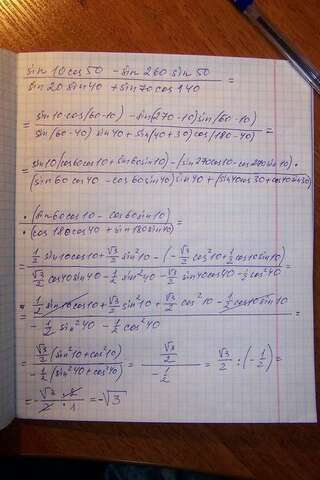 sin 10 cos 50 - sin 260 sin 50 / sin 20 sin 40 + sin 70 cos 140 =
= sin 10 cos (60-10) - sin (270-10) sin (60-10) / sin (60-40) sin 40 + sin (40+30) cos (180-40) =
= sin 10 (cos 60 cos 10 + sin 60 sin 10) - (sin 270 cos 10 - cos 270 sin 10) · / (sin 60 cos 40 - cos 60 sin 40) sin 40 + (sin 40 cos 30 + cos 40 sin 30)
· (sin 60 cos 10 - cos 60 sin 10) / · (cos 180 cos 40 + sin 180 sin 40) =
= 1/2 sin 10 cos 10 + √3/2 sin² 10 - (-√3/2 cos² 10 + 1/2 cos 10 sin 10) / √3/2 cos 40 sin 40 - 1/2 sin² 40 - √3/2 sin 40 cos 40 - 1/2 cos² 40 =
= 1/2 sin 10 cos 10 + √3/2 sin² 10 + √3/2 cos² 10 - 1/2 cos 10 sin 10 / - 1/2 sin² 40 - 1/2 cos² 40 =
= √3/2 (sin² 10 + cos² 10) / - 1/2 (sin² 40 + cos² 40) = √3/2 / - 1/2 = √3/2 : (- 1/2) =
= - √3 · 2 / 2 · 1 = - √3